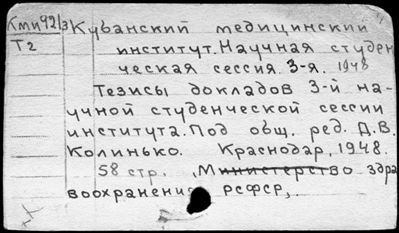 Кми42/3 Кубанский медицинский
Т2 институт. Научная студен
ческая сессия. 3-я. 1948
Тезисы докладов 3-й на-
учной студенческой сессии
института. Под общ. ред. Д.В.
Колинько. Краснодар, 1948.
58 стр. , Министерство здра
воохранения РСФСР,